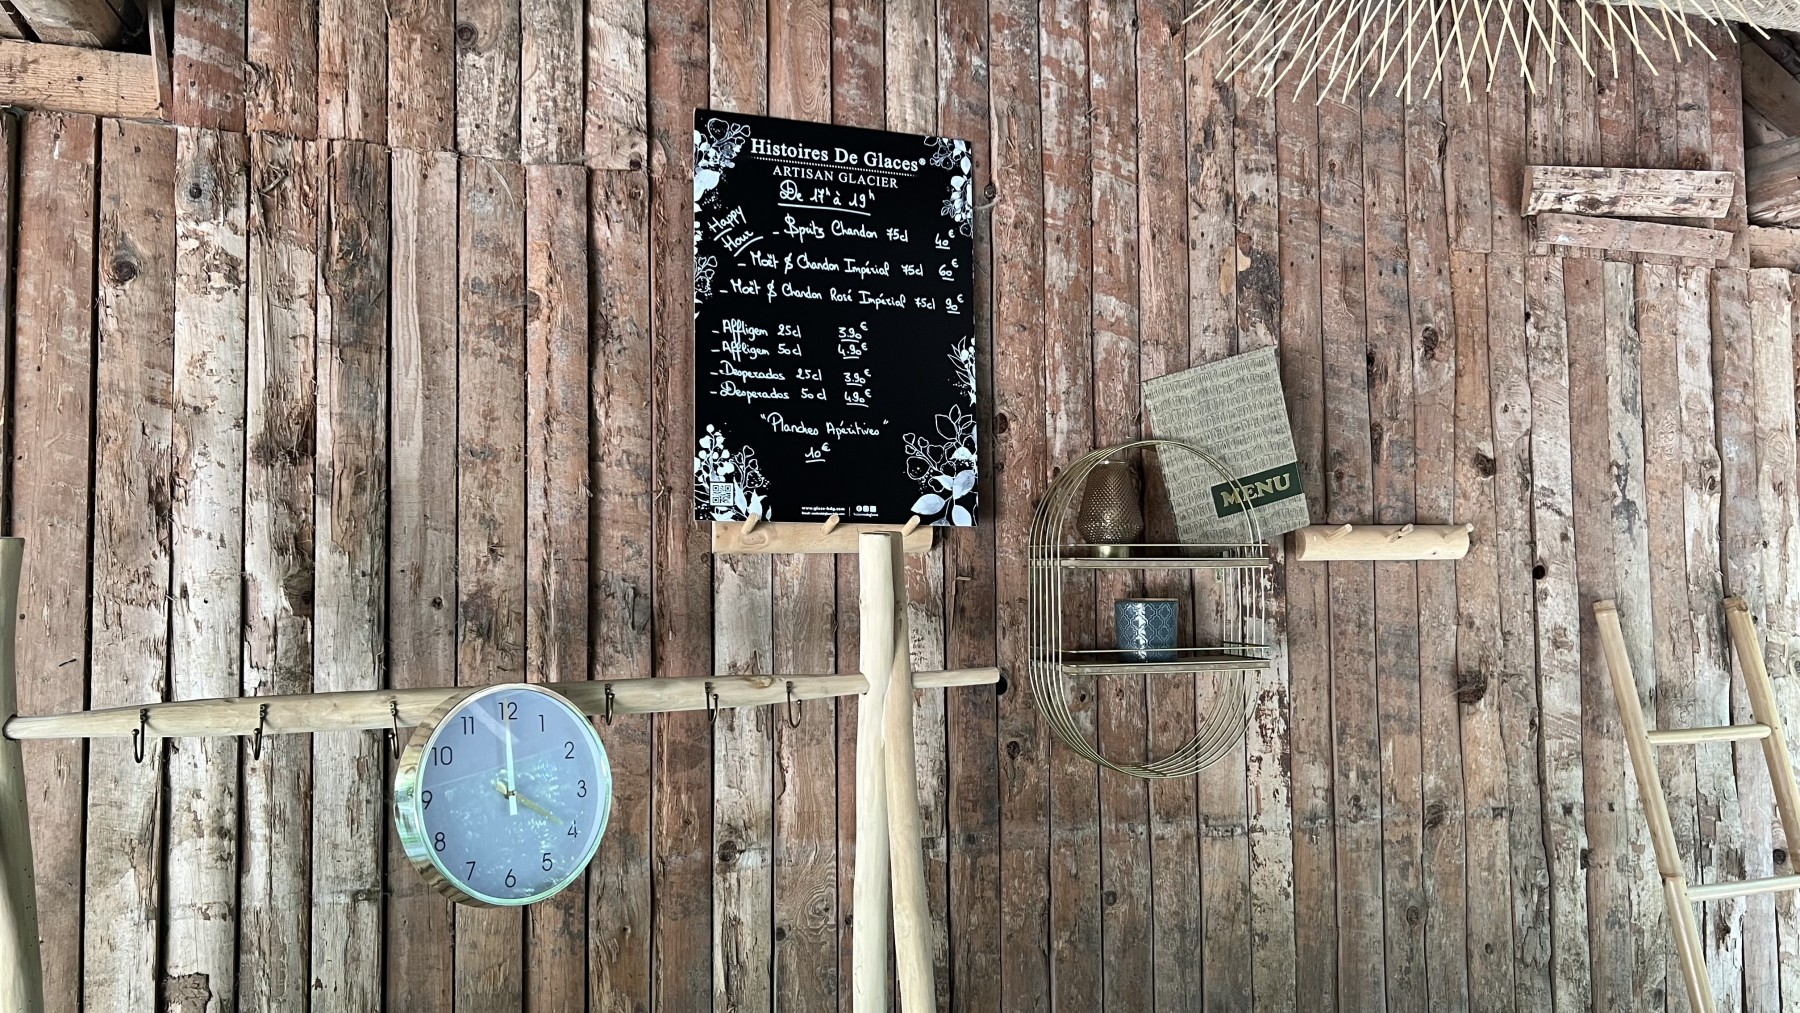 Histoires De Glaces®
ARTISAN GLACIER
De 17h à 19h
Happy
Hour
- Spritz Chandon 75cl 40€
- Moët & Chandon Impérial 75cl 60€
- Moët & Chandon Rosé Impérial 75cl 90€
- Affligem 25cl 3.90€
- Affligem 50cl 4.90€
- Desperados 25cl 3.90€
- Desperados 50cl 4.90€
"Planches Apéritives"
10€
www.glace-hdg.com
MENU
12
1
2
3
4
5
6
7
8
9
10
11